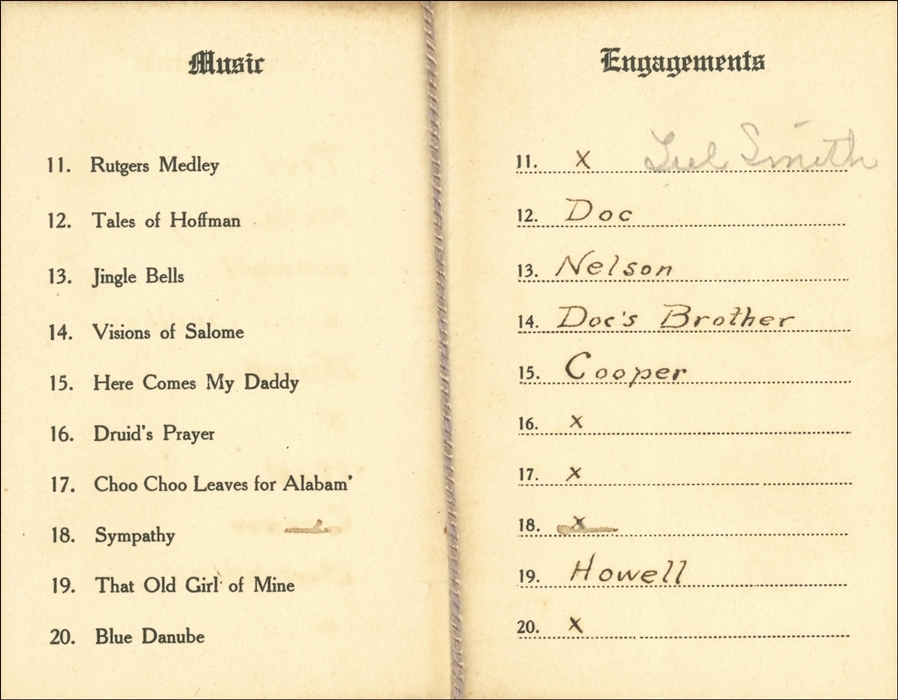 Music
11. Rutgers Medley
12. Tales of Hoffman
13. Jingle Bells
14. Visions of Salome
15. Here Comes My Daddy
16. Druid's Prayer
17. Choo Choo Leaves for Alabam'
18. Sympathy
19. That Old Girl of Mine
20. Blue Danube
Engagements
11. x Smith
12. Doc
13. Nelson
14. Doc's Brother
15. Cooper
16. x
17. x
18. x
19. Howell
20. x